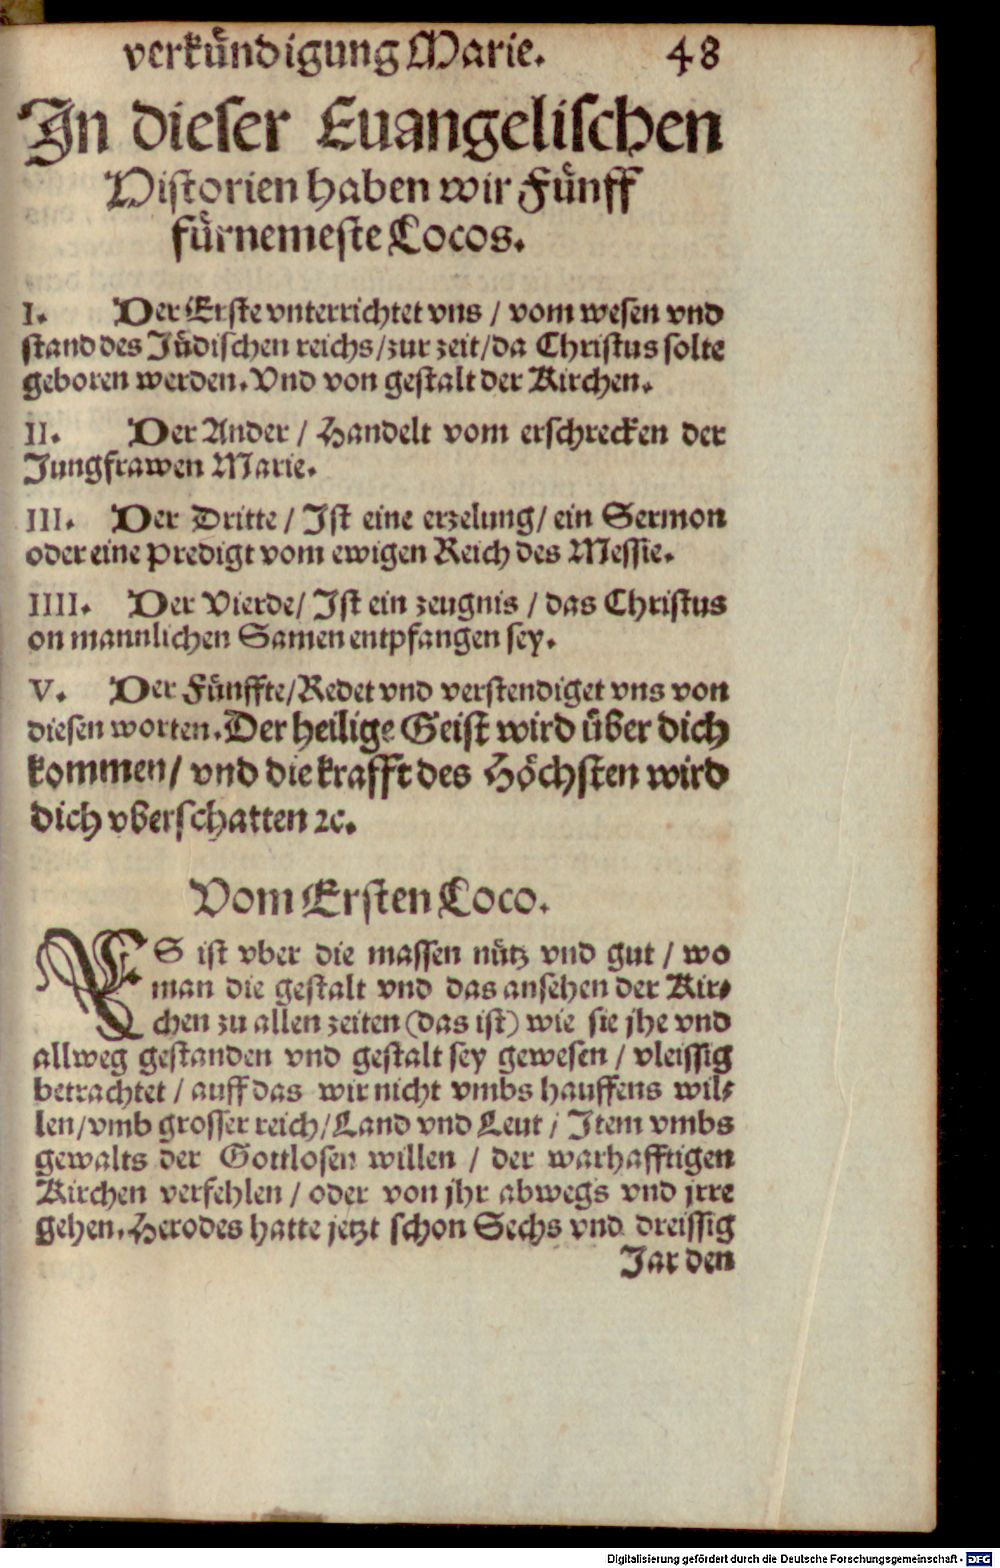 verkündigung Marie. 48
In dieser Euangelischen
Historien haben wir Fünff
fürnemeste Locos.
I. Der Erste vnterrichtet vns / vom wesen vnd
stand des Jüdischen reichs / zur zeit / da Christus solte
geboren werden. Vnd von gestalt der Kirchen.
II. Der Ander / Handelt vom erschrecken der
Jungfrawen Marie.
III. Der Dritte / Ist eine erzelung / ein Sermon
oder eine predigt vom ewigen Reich des Messie.
IIII. Der Vierde / Ist ein zeugnis / das Christus
on mannlichen Samen entpfangen sey.
V. Der Fünffte / Redet vnd verstendiget vns von
diesen worten. Der heilige Geist wird über dich
kommen / vnd die krafft des Höchsten wird
dich vberschatten ꝛc.
Vom Ersten Loco.
ES ist vber die massen nütz vnd gut / wo
man die gestalt vnd das ansehen der Kir⸗
chen zu allen zeiten (das ist) wie sie jhe vnd
allweg gestanden vnd gestalt sey gewesen / vleissig
betrachtet / auff das wir nicht vmbs hauffens wil⸗
len / vmb grosser reich / Land vnd Leut / Item vmbs
gewalts der Gottlosen willen / der warhafftigen
Kirchen verfehlen / oder von jhr abwegs vnd jrre
gehen. Herodes hatte jetzt schon Sechs vnd dreissig
Jar den
Digitalisierung gefördert durch die Deutsche Forschungsgemeinschaft - DFG